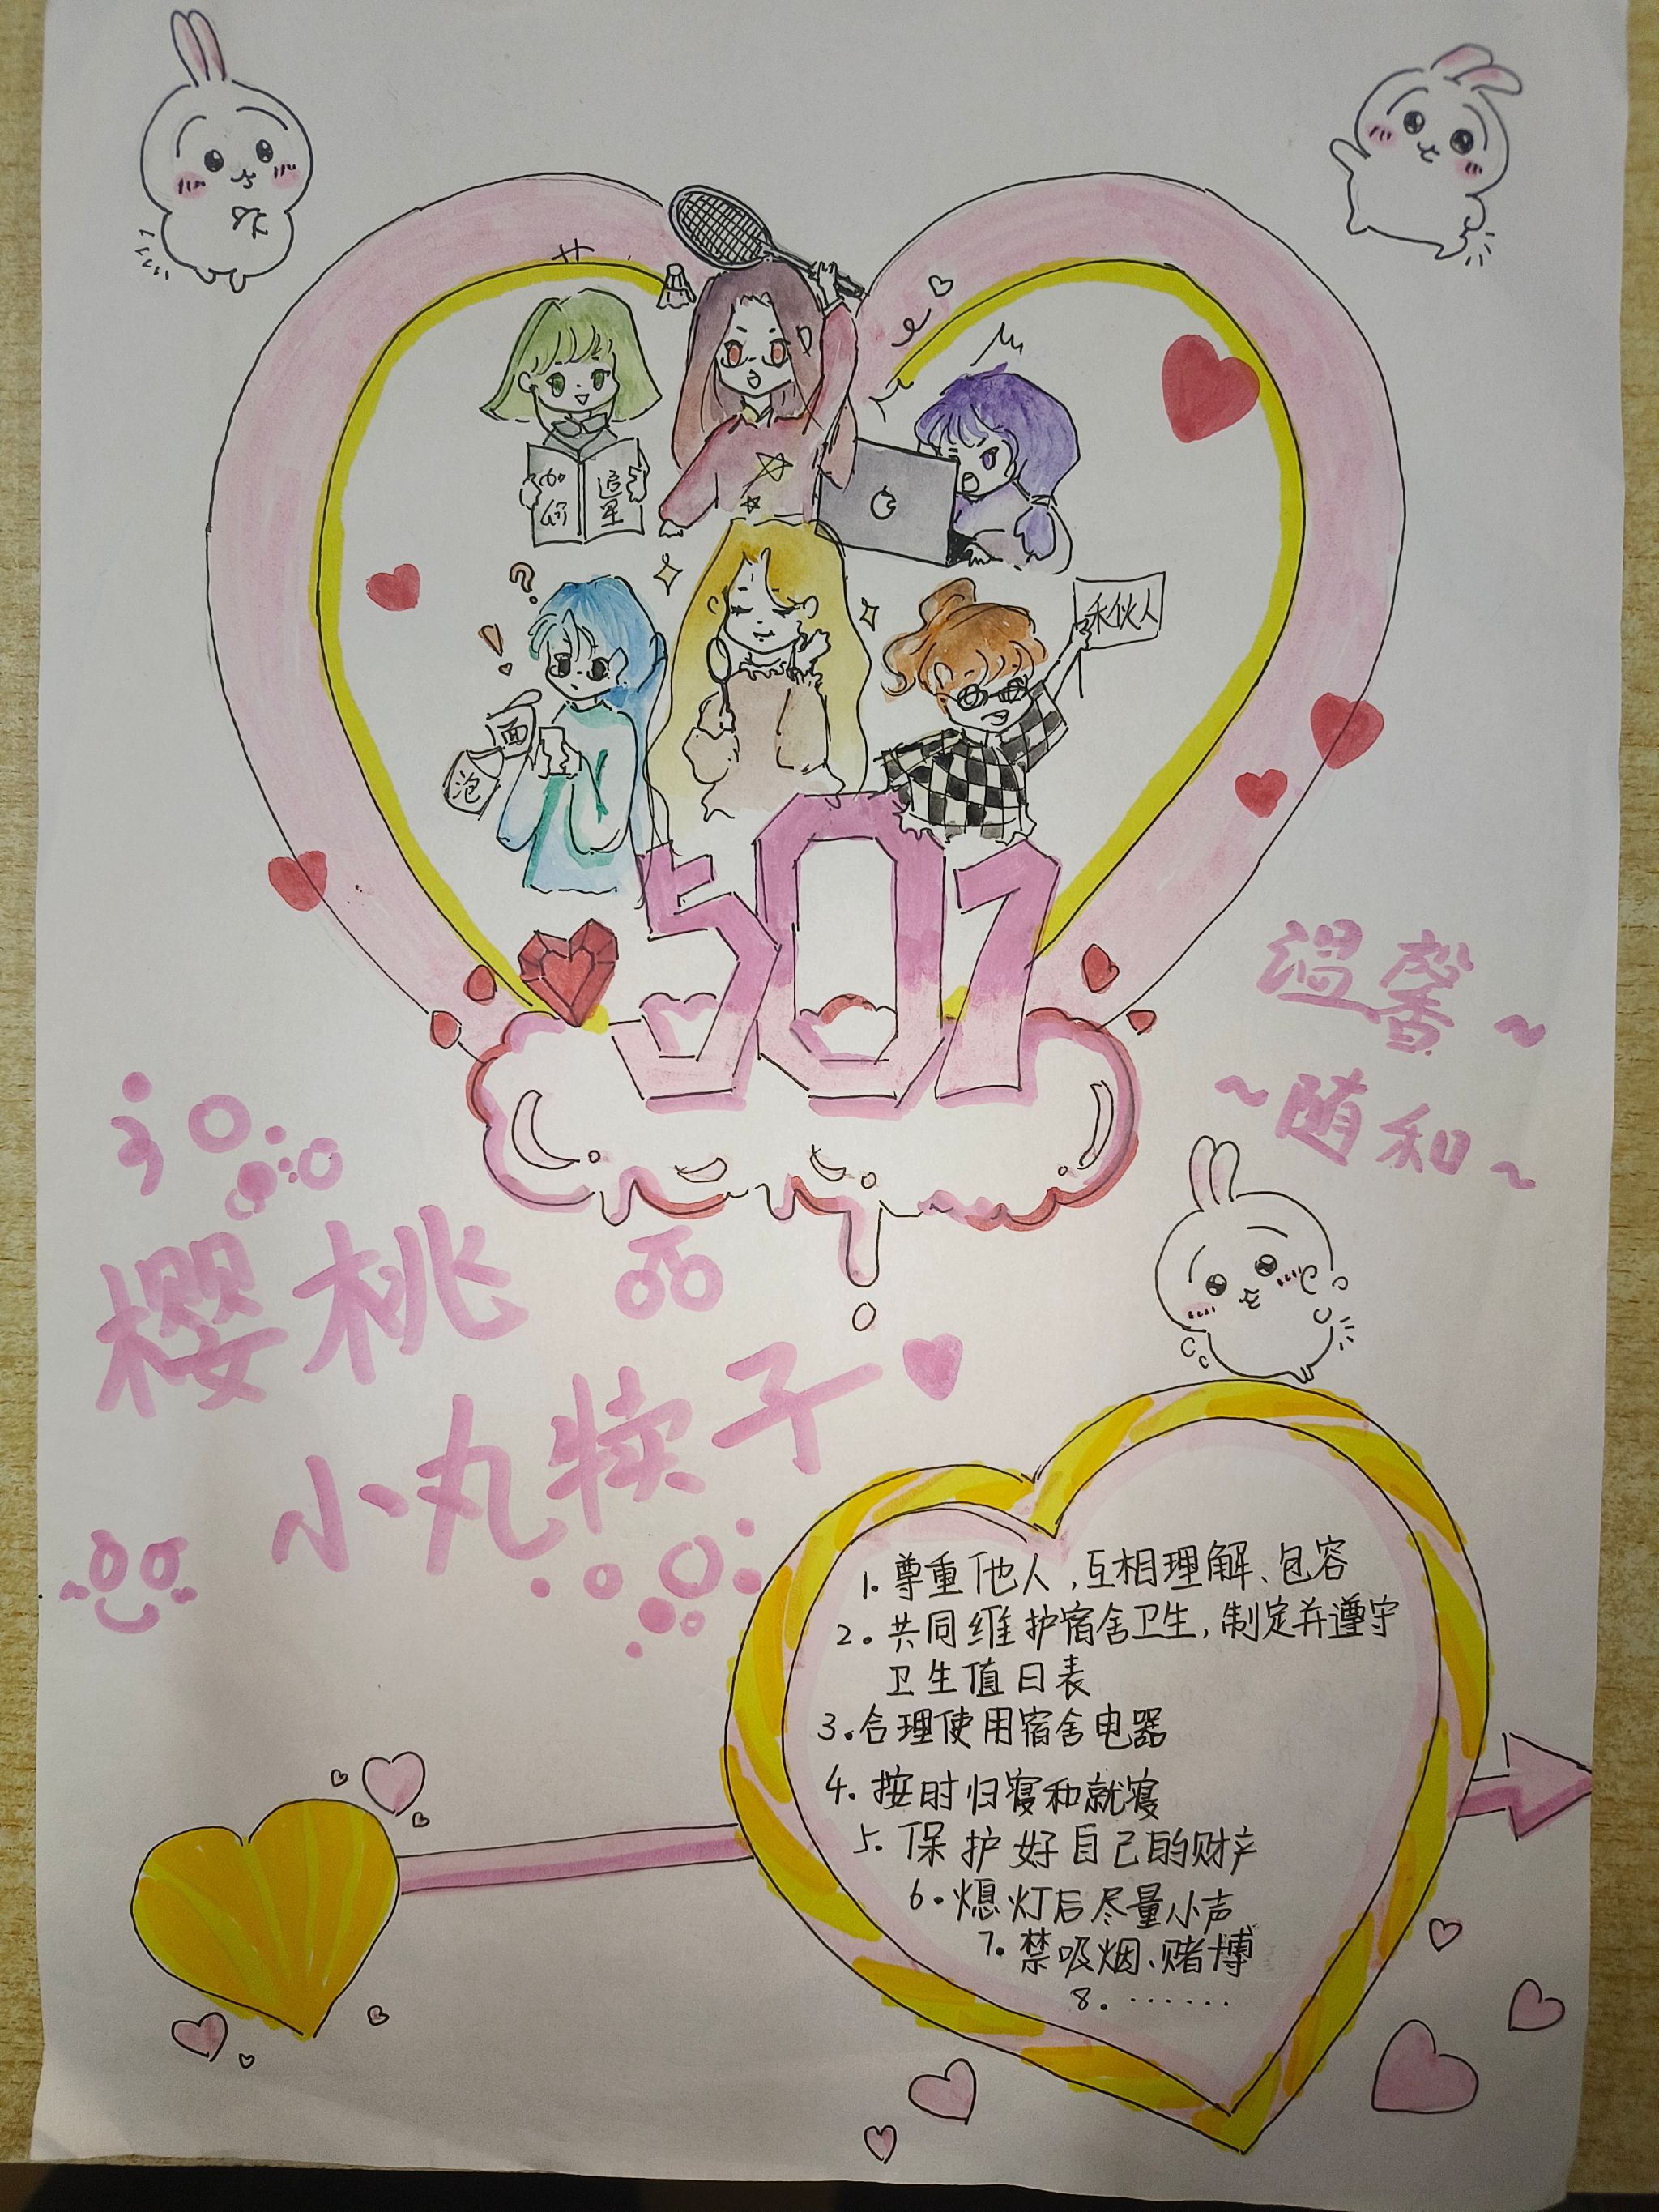 追星
永伙人
泡面
501
温馨~
~随和~
樱桃
小丸犊子
1. 尊重他人,互相理解、包容
2. 共同维护宿舍卫生,制定并遵守
卫生值日表
3. 合理使用宿舍电器
4. 按时归寝和就寝
5. 保护好自己的财产
6. 熄灯后尽量小声
7. 禁吸烟、赌博
8. ······